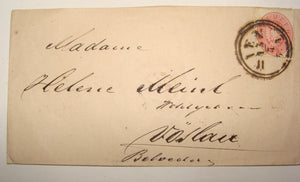 Madame
Helene Meinl
Vöslau
Belveder
WIEN
11